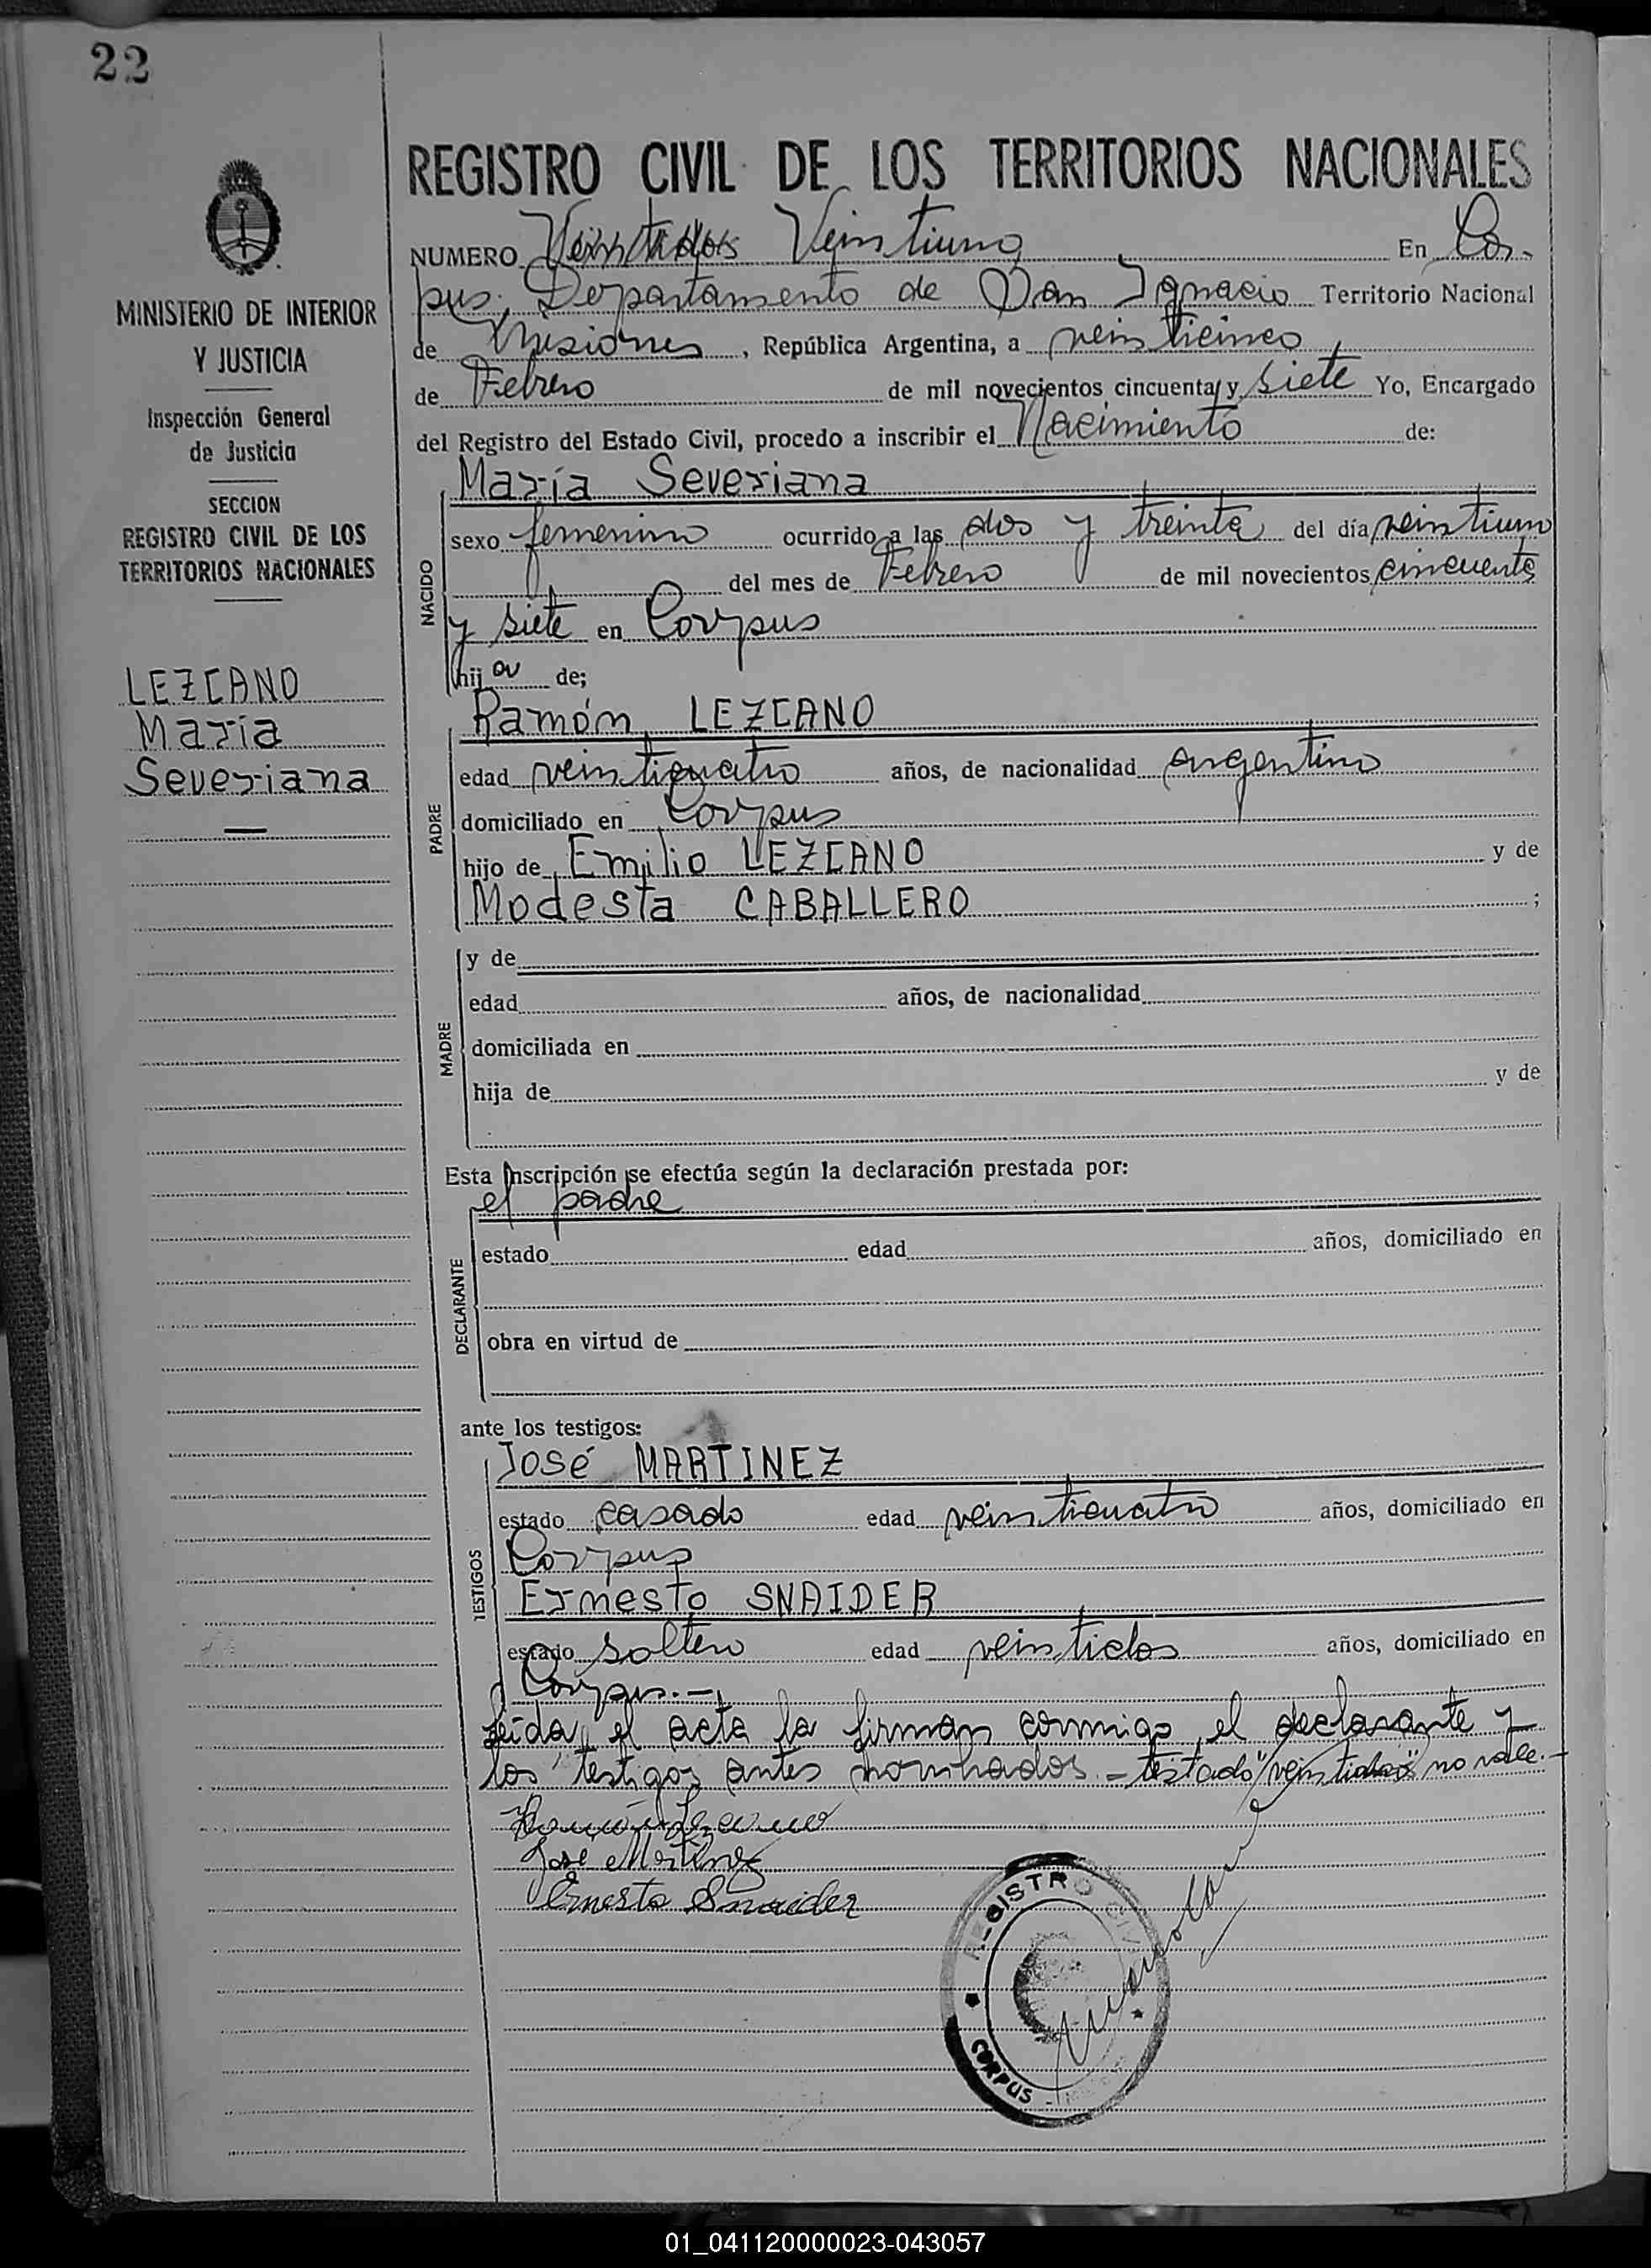 22
REGISTRO CIVIL DE LOS TERRITORIOS NACIONALES
NUMERO Veintidos Veintiuno En Cor-
pus. Departamento de San Ignacio Territorio Nacional
de Misiones, República Argentina, a veinticinco
de Febrero de mil novecientos cincuenta y siete Yo, Encargado
del Registro del Estado Civil, procedo a inscribir el Nacimiento de:
MINISTERIO DE INTERIOR
Y JUSTICIA
Inspección General
de Justicia
SECCION
REGISTRO CIVIL DE LOS
TERRITORIOS NACIONALES
LEZCANO
María
Severiana
NACIDO
María Severiana
sexo femenino ocurrido a las dos y treinta del día veintiuno
del mes de Febrero de mil novecientos cincuenta
y siete en Corpus
hija de;
PADRE
Ramón LEZCANO
edad veinticuatro años, de nacionalidad argentino
domiciliado en Corpus
hijo de Emilio LEZCANO y de
Modesta CABALLERO ;
MADRE
y de
edad años, de nacionalidad
domiciliada en
hija de y de
Esta inscripción se efectúa según la declaración prestada por:
el padre
DECLARANTE
estado edad años, domiciliado en
obra en virtud de
ante los testigos:
TESTIGOS
José MARTINEZ
estado casado edad veinticuatro años, domiciliado en
Corpus
Ernesto SNAIDER
estado soltero edad veintidos años, domiciliado en
Corpus.-
Leída el acta la firman conmigo, el declarante y
los testigos antes nombrados.- testado "veintidos" no vale.-
Ramón Lezcano
José Martinez
Ernesto Snaider
REGISTRO CIVIL
CORPUS
01_041120000023-043057